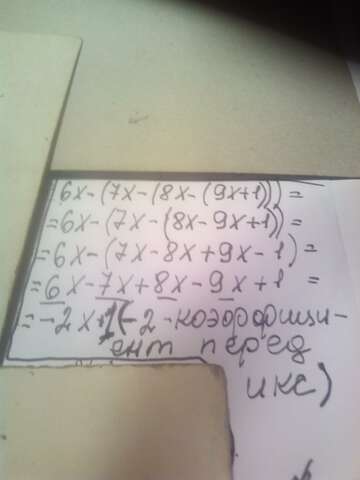 6x-(7x-(8x-(9x+1)))=
=6x-(7x-(8x-9x+1))=
=6x-(7x-8x+9x-1)=
=6x-7x+8x-9x+1 =
=-2x+1(-2 -коэффици-
ент перед
икс)